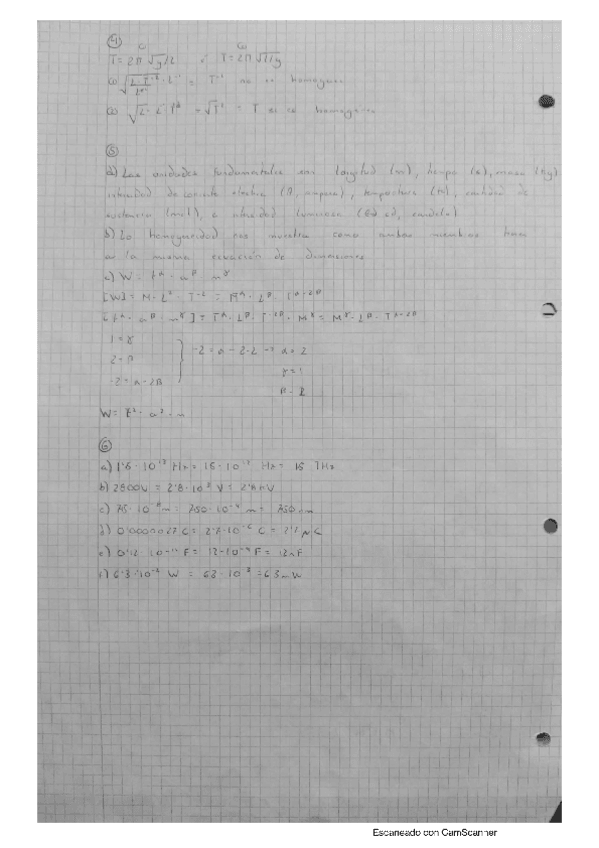 4
T = 2π √g/L ó T = 2π √L/g
= T⁻¹ no es homogéneo
= √T² = T si es homogéneo
5
a) Las unidades fundamentales son longitud (m), tiempo (s), masa (kg)
intensidad de corriente eléctrica (A, ampere), temperatura (K), cantidad de
sustancia (mol), e intensidad luminosa (cd, candela)
b) La homogeneidad nos muestra como ambos miembros
la misma ecuación de dimensiones
c) W = tᵅ · aᵝ · mᵞ
[W] = M · L² · T⁻² =
[tᵅ · aᵝ · mᵞ] = Tᵅ · Lᵝ · T⁻²ᵝ · Mᵞ = Mᵞ · Lᵝ · Tᵅ⁻²ᵝ
1 = γ
2 = β
-2 = α - 2β
-2 = α - 2·2 → α = 2
γ = 1
β = 2
W = t² · a² · m
6
a) Hz = Hz = THz
b) 2800 V = 2'8 · 10³ V = 2'8 kV
c) 75 · 10⁻⁸ m = 750 · 10⁻⁹ m = 750 nm
d) 0'0000027 C = 2'7 · 10⁻⁶ C = 2'7 μC
e) F = 12 · 10⁻⁹ F = 12 nF
f) W = 63 · 10⁻³ = 63 mW
Escaneado con CamScanner